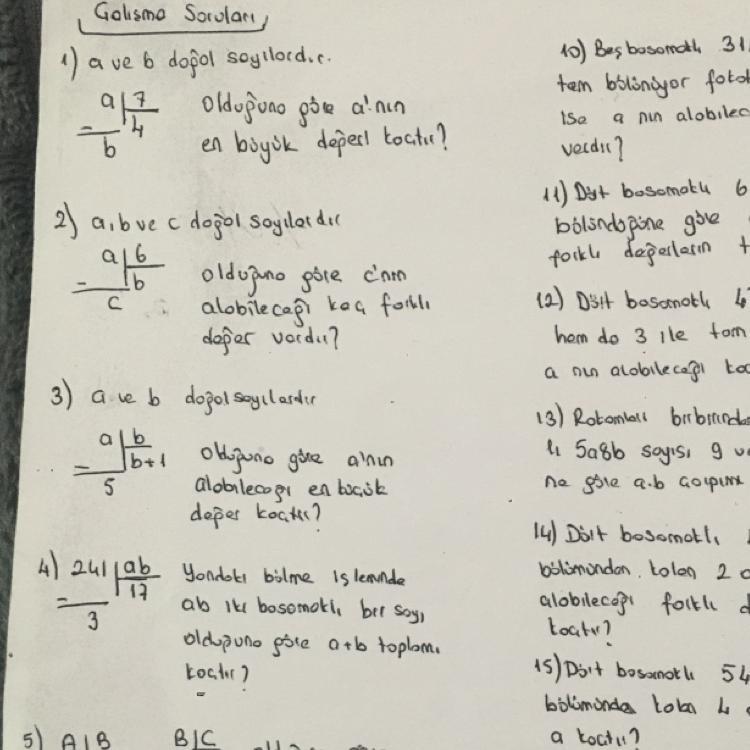 Çalışma Soruları
1) a ve b doğal sayılardır.
a | 7
4
b
Olduğuna göre a'nın
en büyük değeri kaçtır?
2) a, b ve c doğal sayılardır
a | 6
b
c
olduğuna göre c'nin
alabileceği kaç farklı
değer vardır?
3) a ve b doğal sayılardır
a | b
b+1
5
Olduğuna göre a'nın
alabileceği en küçük
değer kaçtır?
4) 241 | ab
17
3
Yandaki bölme işleminde
ab iki basamaklı bir sayı
olduğuna göre a+b toplamı
kaçtır?
5) A | B B | C
10) Beş basamaklı 31
tam bölünüyor
ise a nın
vardır?
11) Dört basamaklı 6
bölündüğüne göre
farklı değerlerin
12) Dört basamaklı 4
hem de 3 ile tam
a nın alabileceği
13) Rakamları
lı 5a8b sayısı 9
na göre a.b çarpımı
14) Dört basamaklı
bölümünden kalan 2
alabileceği farklı
kaçtır?
15) Dört basamaklı 54
bölümünde kalan 4
a kaçtır?